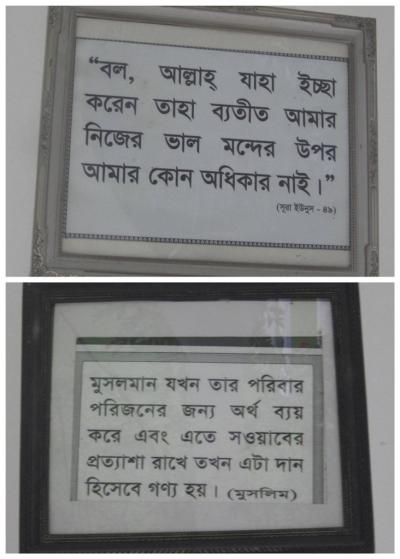 “বল, আল্লাহ্ যাহা ইচ্ছা
করেন তাহা ব্যতীত আমার
নিজের ভাল মন্দের উপর
আমার কোন অধিকার নাই।”
(সূরা ইউনুস - ৪৯)
মুসলমান যখন তার পরিবার
পরিজনের জন্য অর্থ ব্যয়
করে এবং এতে সওয়াবের
প্রত্যাশা রাখে তখন এটা দান
হিসেবে গণ্য হয়। (মুসলিম)